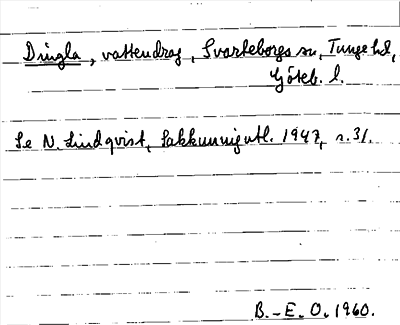 Dingla, vattendrag, Svarteborgs sn, Tunge hd,
Göteb. l.
Se N. Lindqvist, Sakkunnigutl. 1947, s. 31.
B.-E. O. 1960.